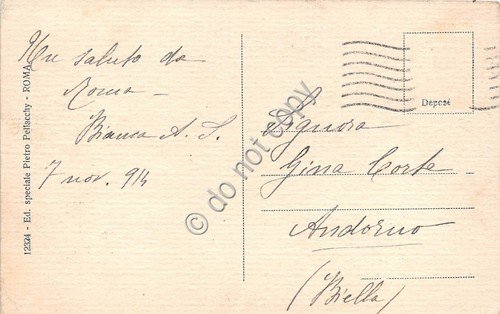 12324 - Ed. speciale Pietro Pellecchy - ROMA
Un saluto da
Roma -
Bianca A. S.
7 nov. 914
Deposé
Signora
Gina Corte
Andorno
(Biella)
© do not copy